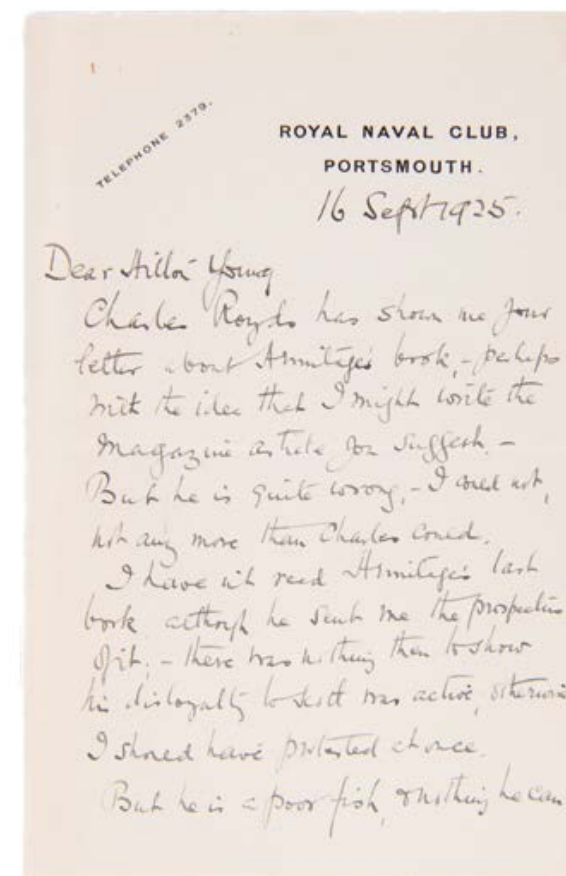 TELEPHONE 2379.
ROYAL NAVAL CLUB,
PORTSMOUTH.
16 Sept 1925.
Dear Hilton Young
Charles Royds has shown me your
letter about Armitage's book, - perhaps
with the idea that I might write the
magazine article you suggest. -
But he is quite wrong, - I could not,
not any more than Charles could.
I have not read Armitage's last
book although he sent me the prospectus
of it, - there was nothing then to show
his disloyalty to Scott was active, otherwise
I should have protested at once.
But he is a poor fish, & nothing he can